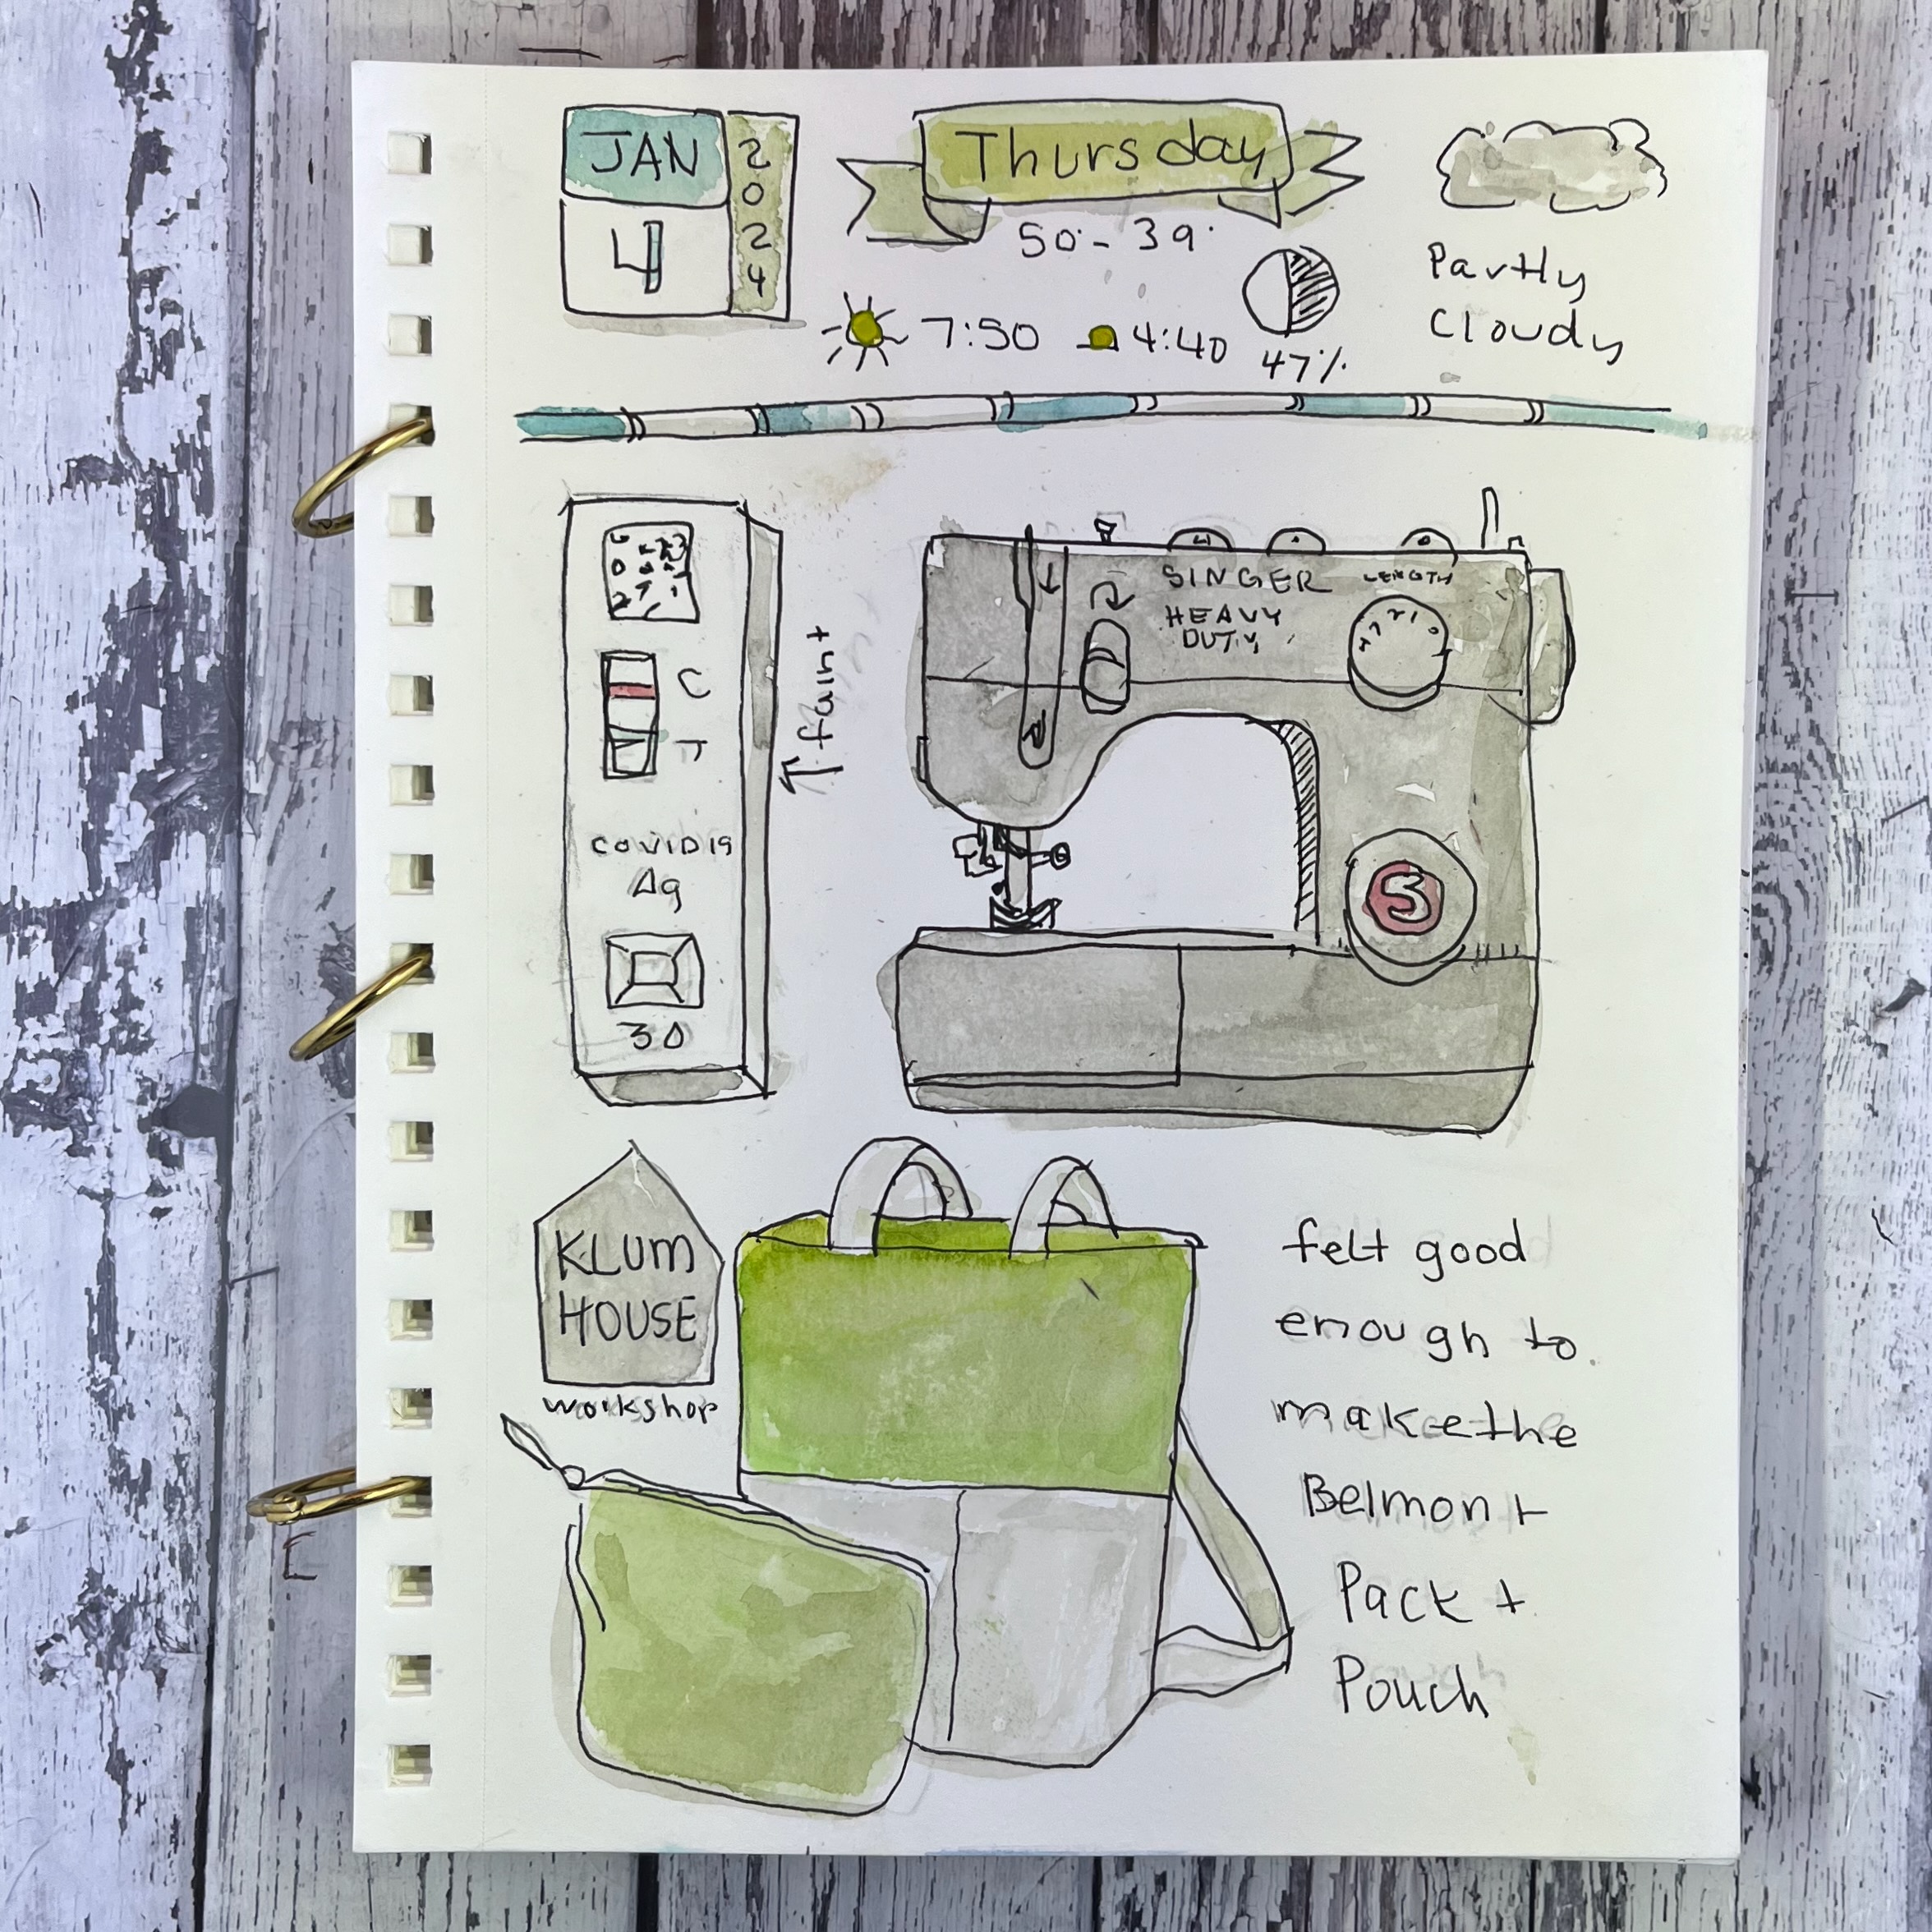 JAN
4
2024
Thursday
50° - 39°
7:50
4:40
47%
Partly
Cloudy
C
T
COVID19
Ag
30
↑ faint
SINGER
HEAVY
DUTY
LENGTH
4
S
KLUM
HOUSE
workshop
felt good
enough to
make the
Belmont
Pack +
Pouch